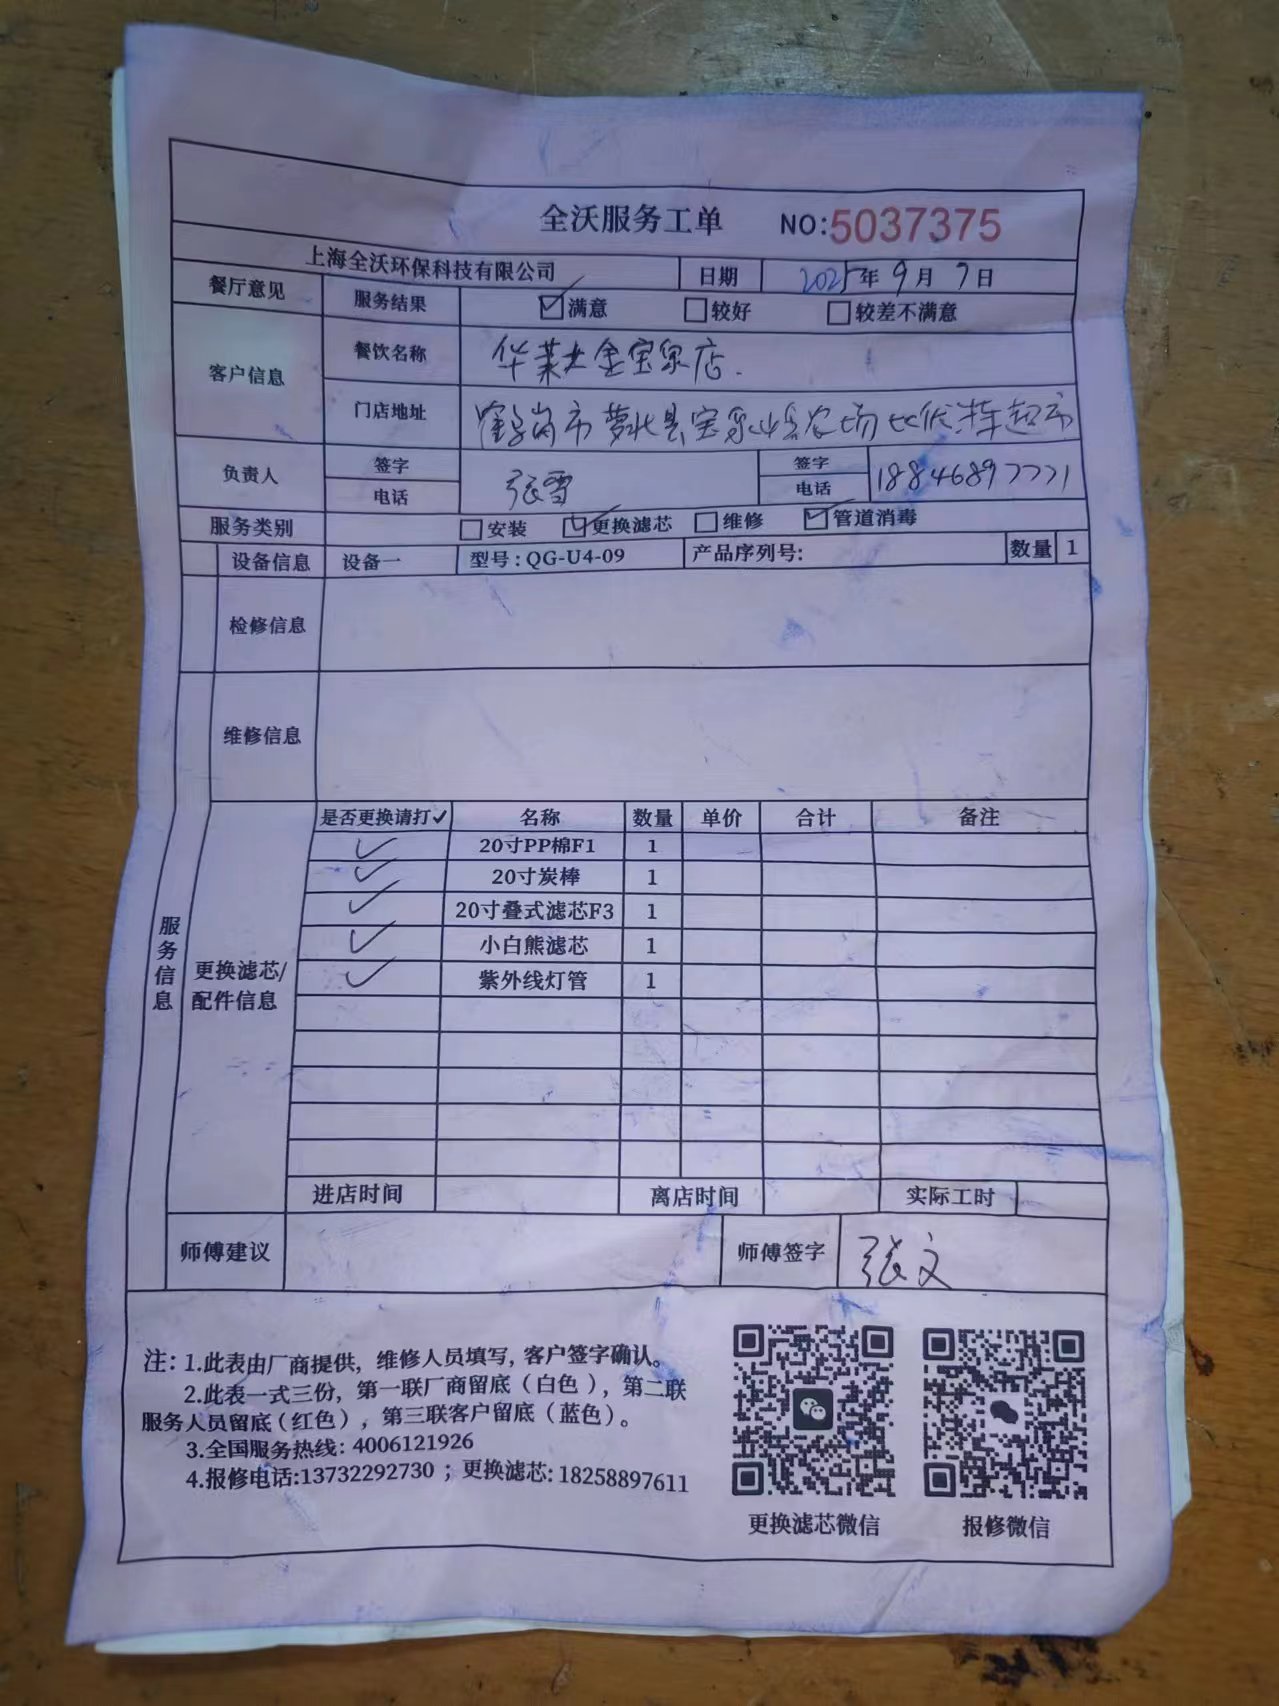 全沃服务工单 NO:5037375
上海全沃环保科技有限公司 日期 2025年9月7日
餐厅意见 服务结果 ☑满意 □较好 □较差不满意
客户信息 餐饮名称 华莱士金宝泉店.
门店地址 鹤岗市萝北县宝泉岭农场比优特超市
负责人 签字 电话 张雪 签字 电话 18846897771
服务类别 □安装 ☑更换滤芯 □维修 ☑管道消毒
设备信息 设备一 型号:QG-U4-09 产品序列号: 数量 1
检修信息
维修信息
服务信息
更换滤芯/配件信息
是否更换请打✓ 名称 数量 单价 合计 备注
✓ 20寸PP棉F1 1
✓ 20寸炭棒 1
✓ 20寸叠式滤芯F3 1
✓ 小白熊滤芯 1
✓ 紫外线灯管 1
进店时间 离店时间 实际工时
师傅建议 师傅签字 张文
注:1.此表由厂商提供,维修人员填写,客户签字确认。
2.此表一式三份,第一联厂商留底(白色),第二联
服务人员留底(红色),第三联客户留底(蓝色)。
3.全国服务热线:4006121926
4.报修电话:13732292730;更换滤芯:18258897611
更换滤芯微信 报修微信